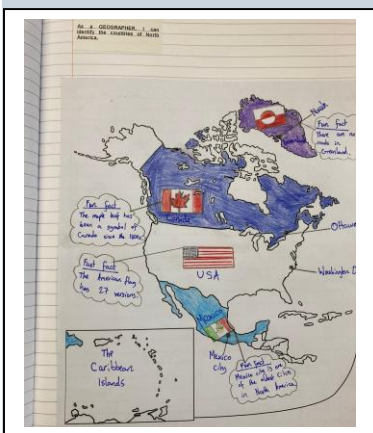 As a GEOGRAPHER, I can
identify the countries of North
America.
Nuuk
Fun fact
There are no
roads in
Greenland
Fun fact
The maple leaf has
been a symbol of
Canada since the
Canada
Ottawa
Fact fact
The American flag
has 27 versions.
USA
Washington D
Mexico
Mexico
city
Fun fact
Mexico city is one
of the oldest cities
in North America.
The
Caribbean
Islands